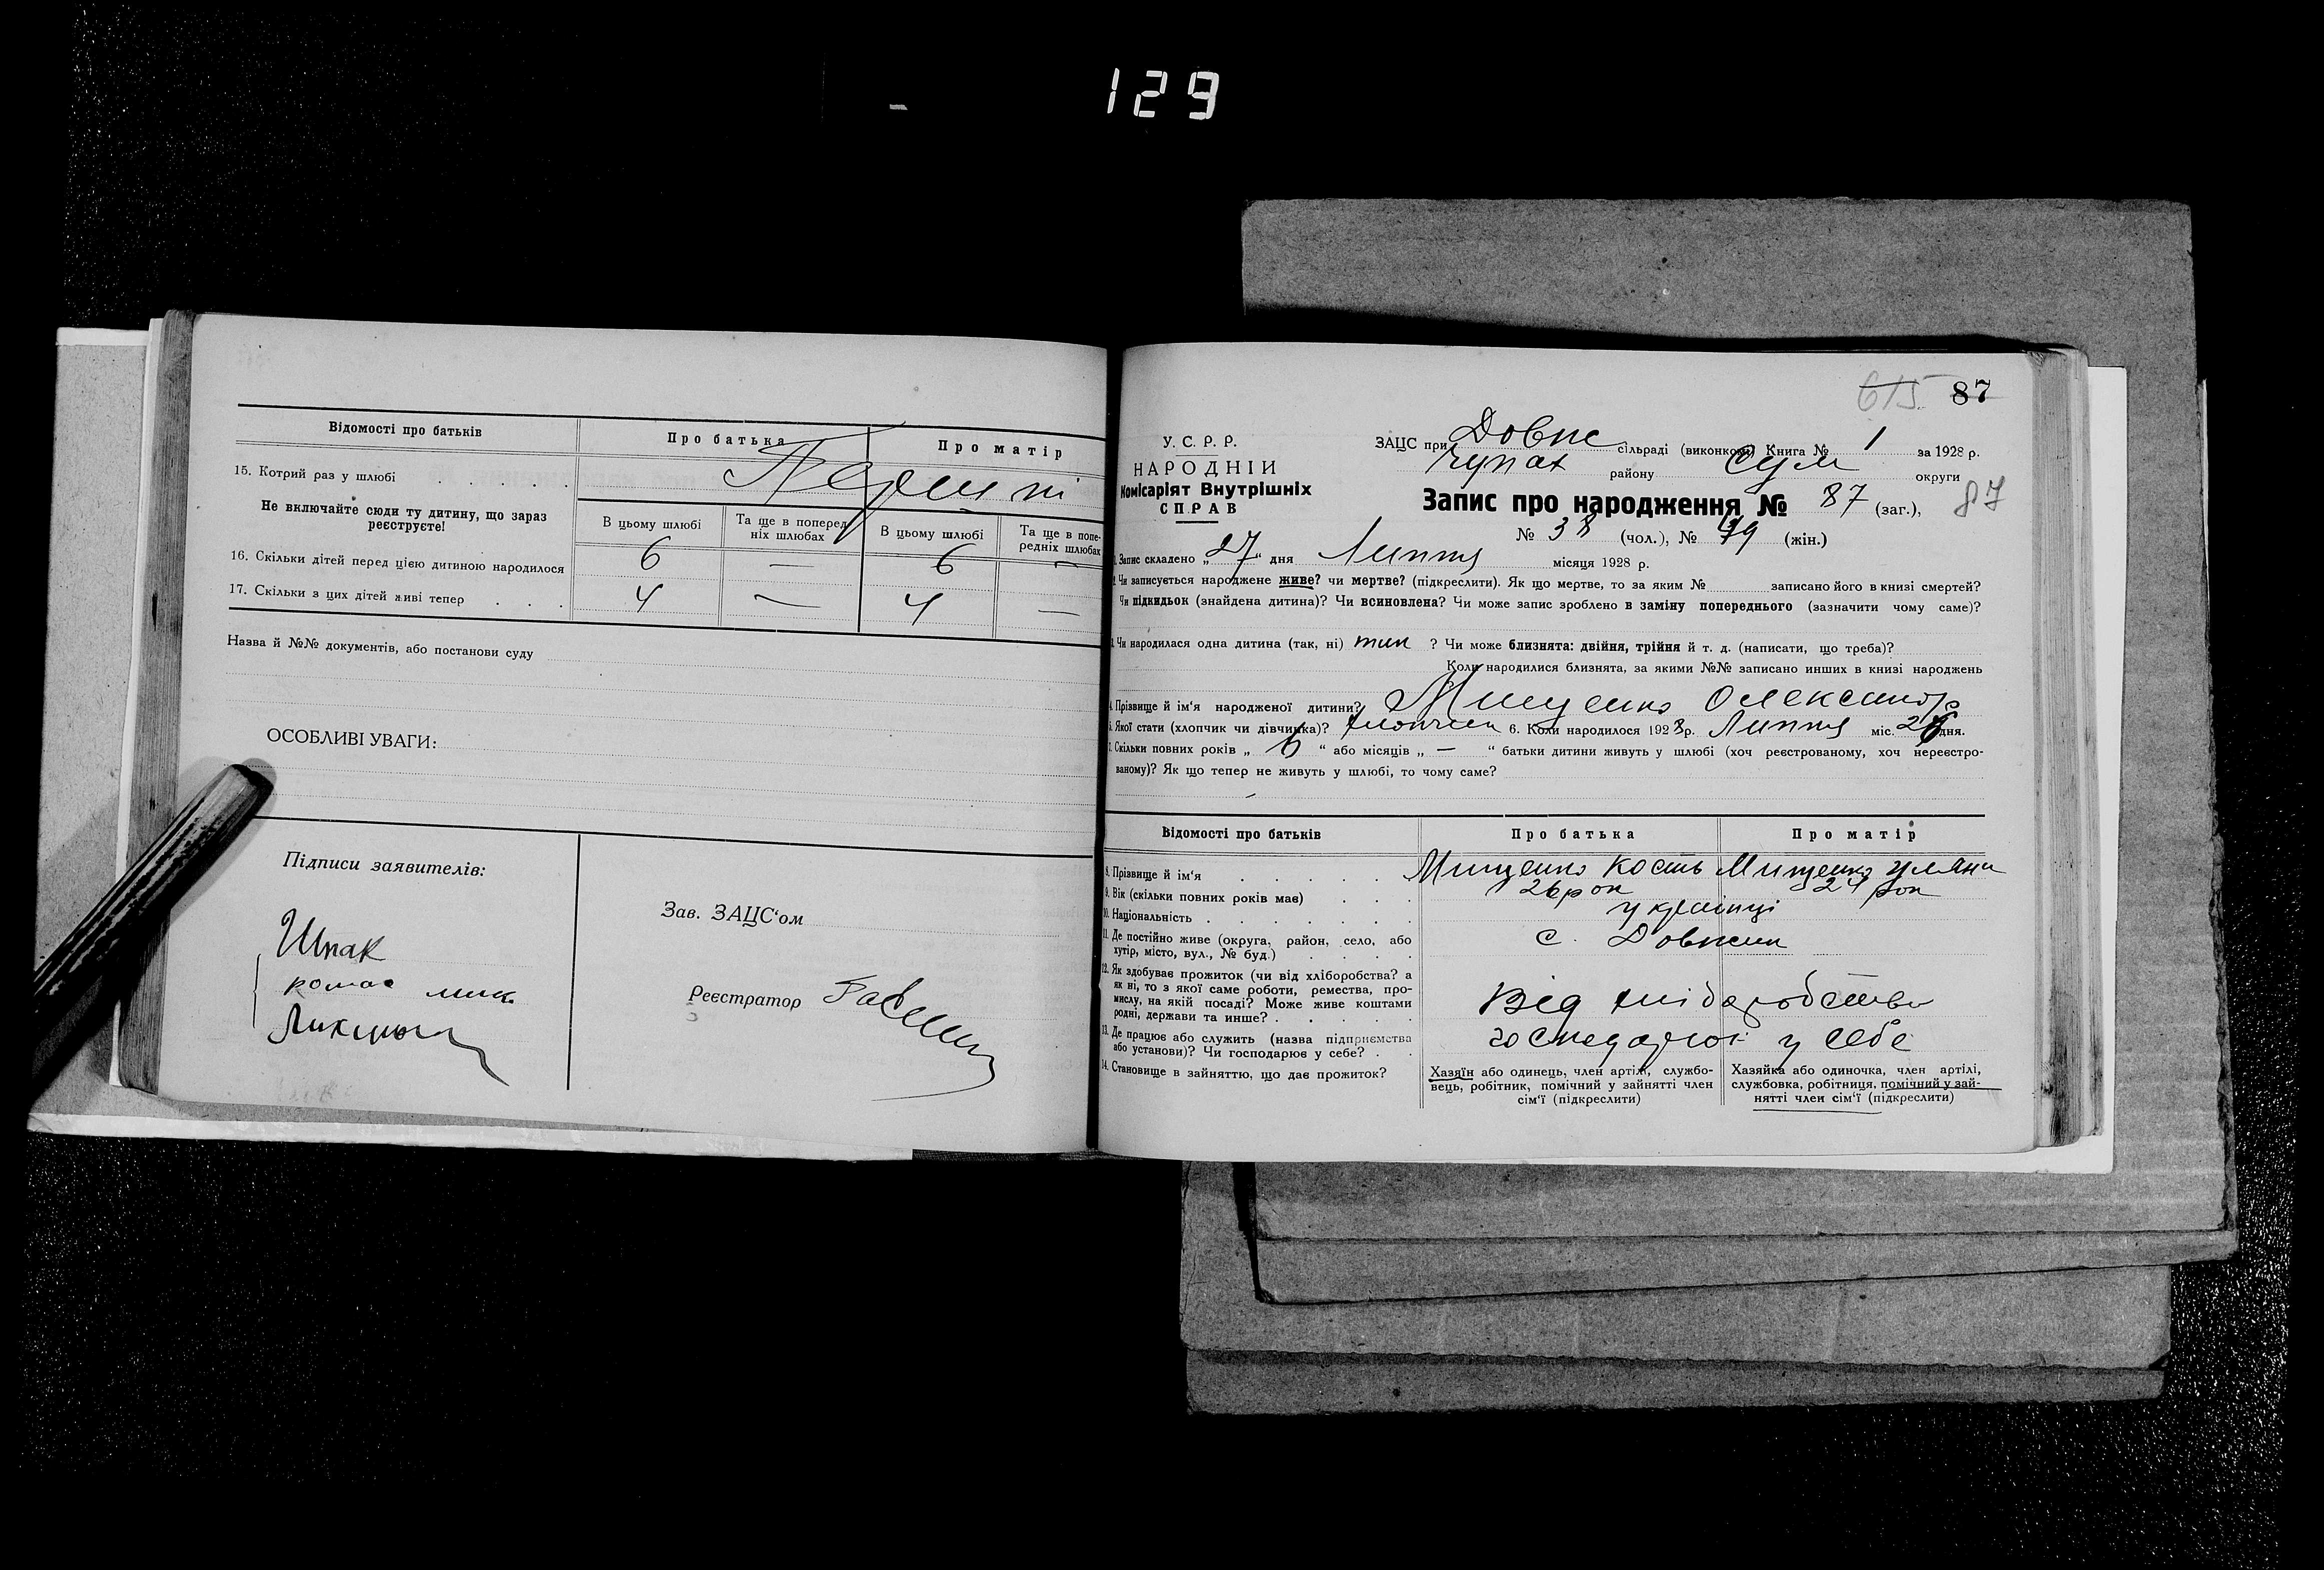 129
Відомості про батьків Про батька Про матір
15. Котрий раз у шлюбі . . . Перши ні
Не включайте сюди ту дитину, що зараз реєструєте!
В цьому шлюбі Та ще в попередніх шлюбах В цьому шлюбі Та ще в попередніх шлюбах
16. Скільки дітей перед цією дитиною народилося 6 — 6 —
17. Скільки з цих дітей живі тепер . . . 4 — 4 —
Назва й №№ документів, або постанови суду
ОСОБЛИВІ УВАГИ:
Підписи заявителів:
Зав. ЗАЦС'ом
Шпак
Реєстратор
615 87
У. С. Р. Р.
НАРОДНІЙ
Комісаріят Внутрішніх
СПРАВ
ЗАЦС при Довж сільраді (виконкомі) Книга № 1 за 1928 р.
Чупах району Сум округи
Запис про народження № 87 (заг.), 87
№ 38 (чол.), № 49 (жін.)
1. Запис складено „27“ дня Липня місяця 1928 р.
2. Чи записується народжене живе? чи мертве? (підкреслити). Як що мертве, то за яким № записано його в книзі смертей?
Чи підкидьок (знайдена дитина)? Чи всиновлена? Чи може запис зроблено в заміну попереднього (зазначити чому саме)?
3. Чи народилася одна дитина (так, ні) так ? Чи може близнята: двійня, трійня й т. д. (написати, що треба)?
Коли народилися близнята, за якими №№ записано инших в книзі народжень
4. Прізвище й ім'я народженої дитини? Мищенко Олександр
5. Якої стати (хлопчик чи дівчинка)? хлопчик 6. Коли народилося 1928 р. Липня міс. дня.
7. Скільки повних років „ 6 “ або місяців „ — “ батьки дитини живуть у шлюбі (хоч реєстрованому, хоч нереєстро-
ваному)? Як що тепер не живуть у шлюбі, то чому саме?
Відомості про батьків Про батька Про матір
8. Прізвище й ім'я . . . . . Мищенко Кость Мищенко Уляна
9. Вік (скільки повних років має) . . . 26 рок 24 рок
10. Національність . . . . . . . українці
11. Де постійно живе (округа, район, село, або
хутір, місто, вул., № буд.) . . . . с. Довжик
12. Як здобуває прожиток (чи від хліборобства? а
як ні, то з якої саме роботи, ремества, про-
мислу, на якій посаді? Може живе коштами
родні, держави та инше? . . . . . Від хліборобства
13. Де працює або служить (назва підприємства
або установи)? Чи господарює у себе? . . господарює у себе
14. Становище в зайняттю, що дає прожиток?
Хазяїн або одинець, член артілі, службо-
вець, робітник, помічний у зайнятті член
сім'ї (підкреслити)
Хазяйка або одиночка, член артілі,
службовка, робітниця, помічний у зай-
нятті член сім'ї (підкреслити)